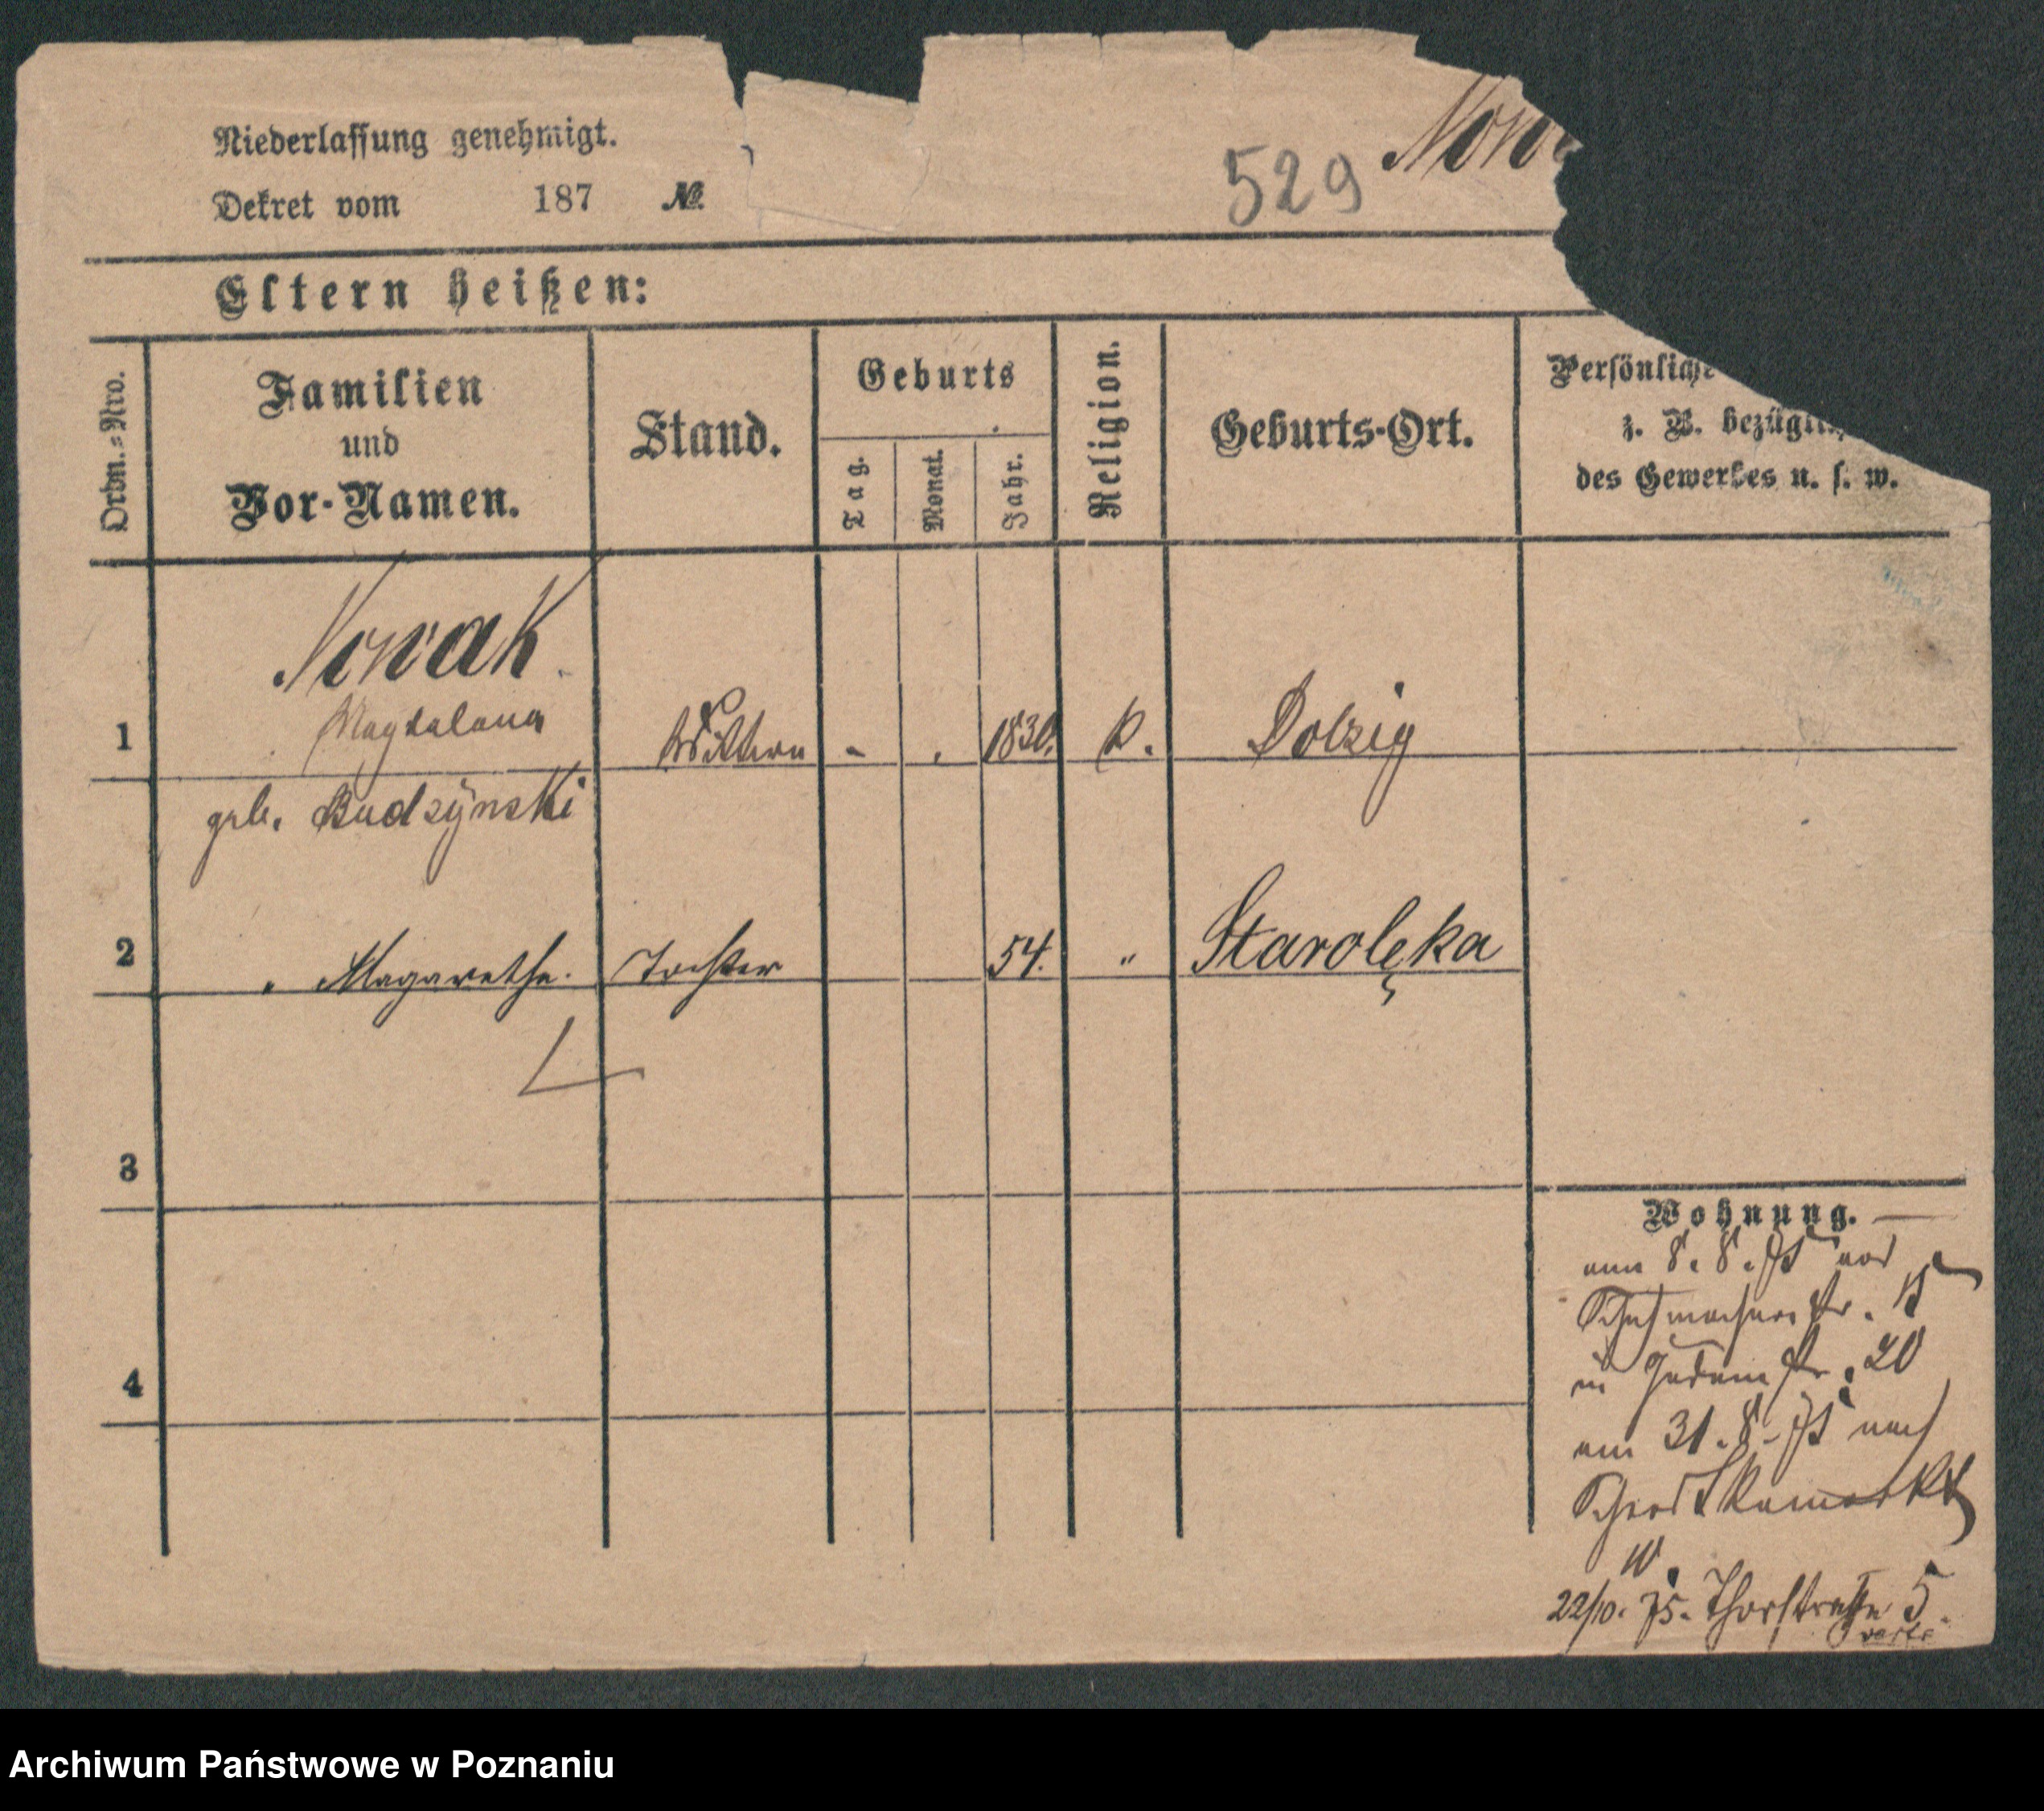 Niederlassung genehmigt.
Dekret vom 187 №
529 Now
Eltern heißen:
Ordn.=Nro.
Familien
und
Vor-Namen.
Stand.
Geburts
Tag.
Monat.
Jahr.
Religion.
Geburts-Ort.
Persönliche
z. B. bezügli
des Gewerbes u. s. w.
Nowak
1 Magdalena Wittwe - . 1830. K. Dolzig
geb. Budzÿnski
2 " Magarethe. Tochter 54. " Starolęka
3
4
Wohnung.
am 8. 8. 75 von
Schuhmacherstr. 15
in Judenstr. 20
am 31. 8. 75 nach
10.
22/10. 75. Thorstraße 5.